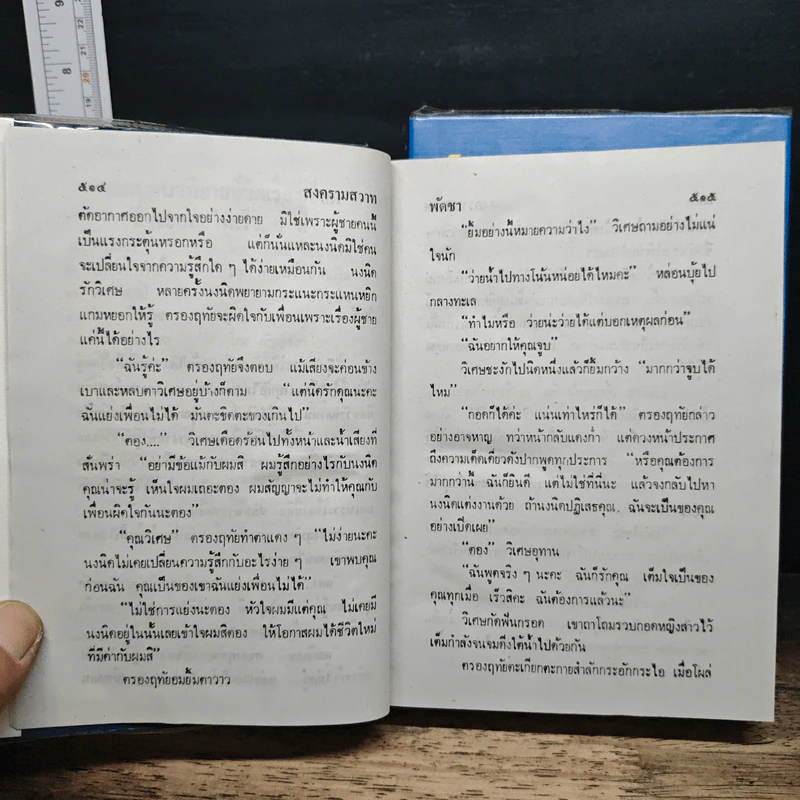 ๕๑๔ สงครามสวาท
ตัดอากาศออกไปจากใจอย่างง่ายดาย มิใช่เพราะผู้ชายคนนี้
เป็นแรงกระตุ้นหรอกหรือ แต่ก็นั่นแหละนงนิดมิใช่คน
จะเปลี่ยนใจจากความรู้สึกใด ๆ ได้ง่ายเหมือนกัน นงนิด
รักวิเศษ หลายครั้งนงนิดพยายามกระแนะกระแหนหยิก
แกมหยอกให้รู้ ตรองฤทัยจะผิดใจกับเพื่อนเพราะเรื่องผู้ชาย
แค่นี้ได้อย่างไร
“ฉันรู้ค่ะ” ตรองฤทัยจึงตอบ แม้เสียงจะค่อนข้าง
เบาและหลบตาวิเศษอยู่บ้างก็ตาม “แต่นิดรักคุณนะคะ
ฉันแย่งเพื่อนไม่ได้ มันตะขิดตะขวงเกินไป”
“ตอง....” วิเศษเดือดร้อนไปทั้งหน้าและน้ำเสียงที่
สั่นพร่า “อย่ามีข้อแม้กับผมสิ ผมรู้สึกอย่างไรกับนงนิด
คุณน่าจะรู้ เห็นใจผมเถอะตอง ผมสัญญาจะไม่ทำให้คุณกับ
เพื่อนผิดใจกันนะตอง”
“คุณวิเศษ” ตรองฤทัยทำตาแดง ๆ “ไม่ง่ายนะคะ
นงนิดไม่เคยเปลี่ยนความรู้สึกกับอะไรง่าย ๆ เขาพบคุณ
ก่อนฉัน คุณเป็นของเขาฉันแย่งเพื่อนไม่ได้”
“ไม่ใช่การแย่งนะตอง หัวใจผมมีแต่คุณ ไม่เคยมี
นงนิดอยู่ในนั้นเลยเข้าใจผมสิตอง ให้โอกาสผมได้ชีวิตใหม่
ที่มีค่ากับผมสิ”
ตรองฤทัยอมยิ้มตาวาว
พัดชา ๕๑๕
“ยิ้มอย่างนี้หมายความว่าไง” วิเศษถามอย่างไม่แน่
ใจนัก
“ว่ายน้ำไปทางโน้นหน่อยได้ไหมคะ” หล่อนบุ้ยไป
กลางทะเล
“ทำไมหรือ ว่ายน่ะว่ายได้แต่บอกเหตุผลก่อน”
“ฉันอยากให้คุณจูบ”
วิเศษชะงักไปนิดหนึ่งแล้วก็ยิ้มกว้าง “มากกว่าจูบได้
ไหม”
“กอดก็ได้ค่ะ แน่นเท่าไหร่ก็ได้” ตรองฤทัยกล่าว
อย่างอาจหาญ ทว่าหน้ากลับแดงก่ำ แต่ดวงหน้าประกาศ
ถึงความเด็ดเดี่ยวดังปากพูดทุกประการ “หรือคุณต้องการ
มากกว่านี้ ฉันก็ยินดี แต่ไม่ใช่ที่นี่นะ แล้วจงกลับไปหา
นงนิดแต่งงานด้วย ถ้านงนิดปฏิเสธคุณ ฉันจะเป็นของคุณ
อย่างเปิดเผย”
“ตอง” วิเศษอุทาน
“ฉันพูดจริง ๆ นะคะ ฉันก็รักคุณ เต็มใจเป็นของ
คุณทุกเมื่อ เร็วสิคะ ฉันต้องการแล้วนะ”
วิเศษกัดฟันกรอด เขาถาโถมรวบกอดหญิงสาวไว้
เต็มกำลังจนจมดิ่งใต้น้ำไปด้วยกัน
ตรองฤทัยตะเกียกตะกายสำลักกระอักกระไอ เมื่อโผล่
8
22
21
20
19